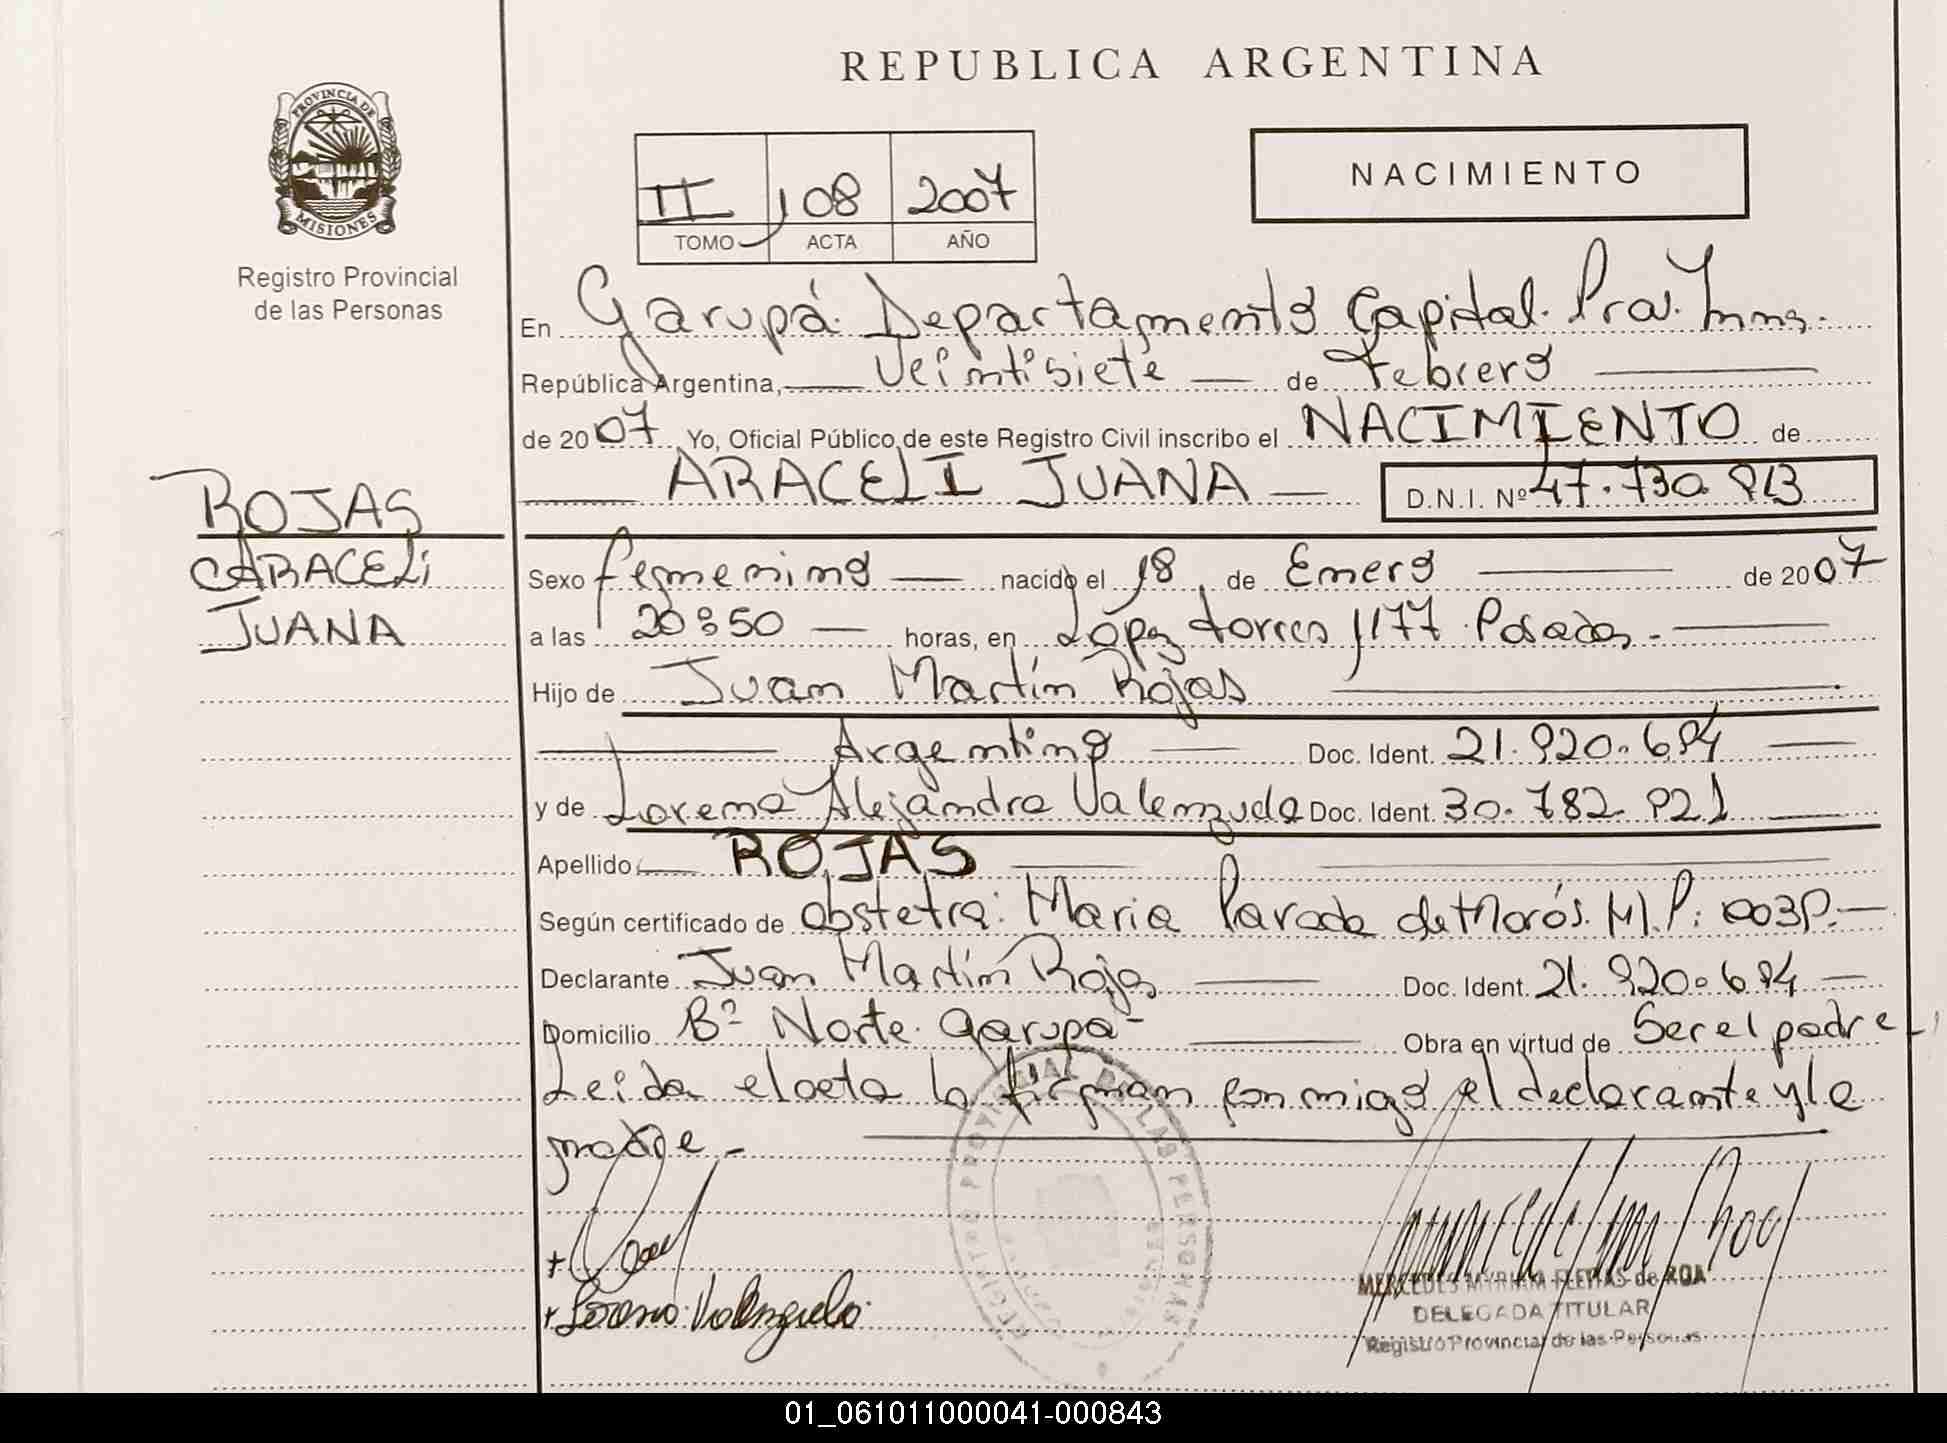 REPUBLICA ARGENTINA
PROVINCIA DE
MISIONES
Registro Provincial
de las Personas
NACIMIENTO
II 108 2007
TOMO ACTA AÑO
En Garupá Departamento Capital. Prov. Mnes.
República Argentina, Veintisiete de Febrero
de 2007 Yo, Oficial Público de este Registro Civil inscribo el NACIMIENTO de
ARACELI JUANA D.N.I. Nº 47.730.913
ROJAS
ARACELI
JUANA
Sexo femenino nacido el 18 de Enero de 2007
a las 20:50 horas, en López torres 1177 Posadas.-
Hijo de Juan Martín Rojas
Argentino Doc. Ident. 21.920.694
y de Lorena Alejandra Valenzuela Doc. Ident. 30.782.921
Apellido ROJAS
Según certificado de obstetra: Maria Parada de Morós. M.P: 0039.-
Declarante Juan Martín Rojas Doc. Ident. 21.920.694
Domicilio Bº Norte. Garupa- Obra en virtud de Ser el padre-
Leida el acta la firman conmigo el declarante y la
madre.-
Lorena Valenzuela
REGISTRO PROVINCIAL DE LAS PERSONAS
MISIONES
MERCEDES MYRIAM FLEITAS de ROA
DELEGADA TITULAR
Registro Provincial de las Personas
01_061011000041-000843